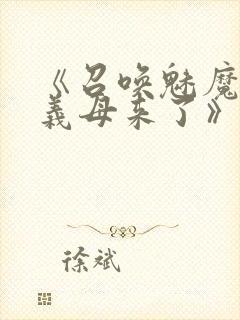 《召唤魅魔
義母来了》
徐斌